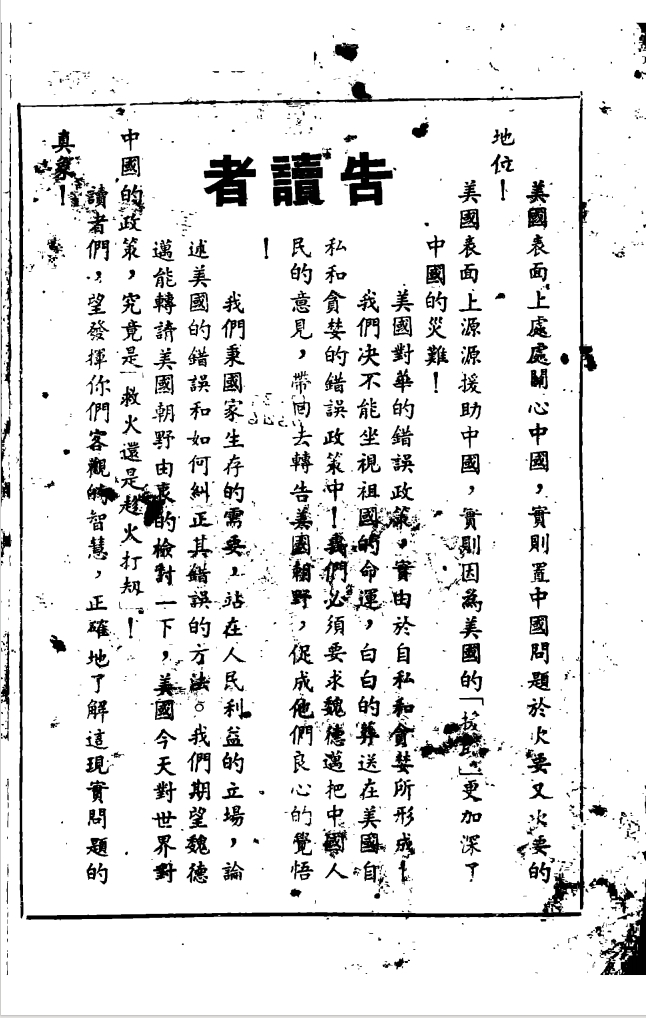 告讀者
美國表面上處處關心中國，實則置中國問題於次要又次要的
地位！
美國表面上源源援助中國，實則因為美國的「援助」更加深了
中國的災難！
美國對華的錯誤政策，實由於自私和貪婪所形成！
我們决不能坐視祖國的命運，白白的葬送在美國自
私和貪婪的錯誤政策中！我們必須要求魏德邁把中國人
民的意見，帶回去轉告美國朝野，促成他們良心的覺悟
！
我們秉國家生存的需要，站在人民利益的立場，論
述美國的錯誤和如何糾正其錯誤的方法。我們期望魏德
邁能轉請美國朝野由衷的檢對一下，美國今天對世界對
中國的政策，究竟是「救火還是趁火打刼」！
讀者們，望發揮你們客觀的智慧，正確地了解這現實問題的
真象！